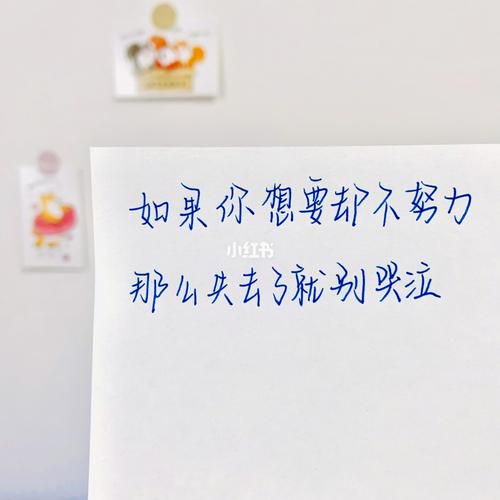 如果你想要却不努力
小红书
那么失去了就别哭泣